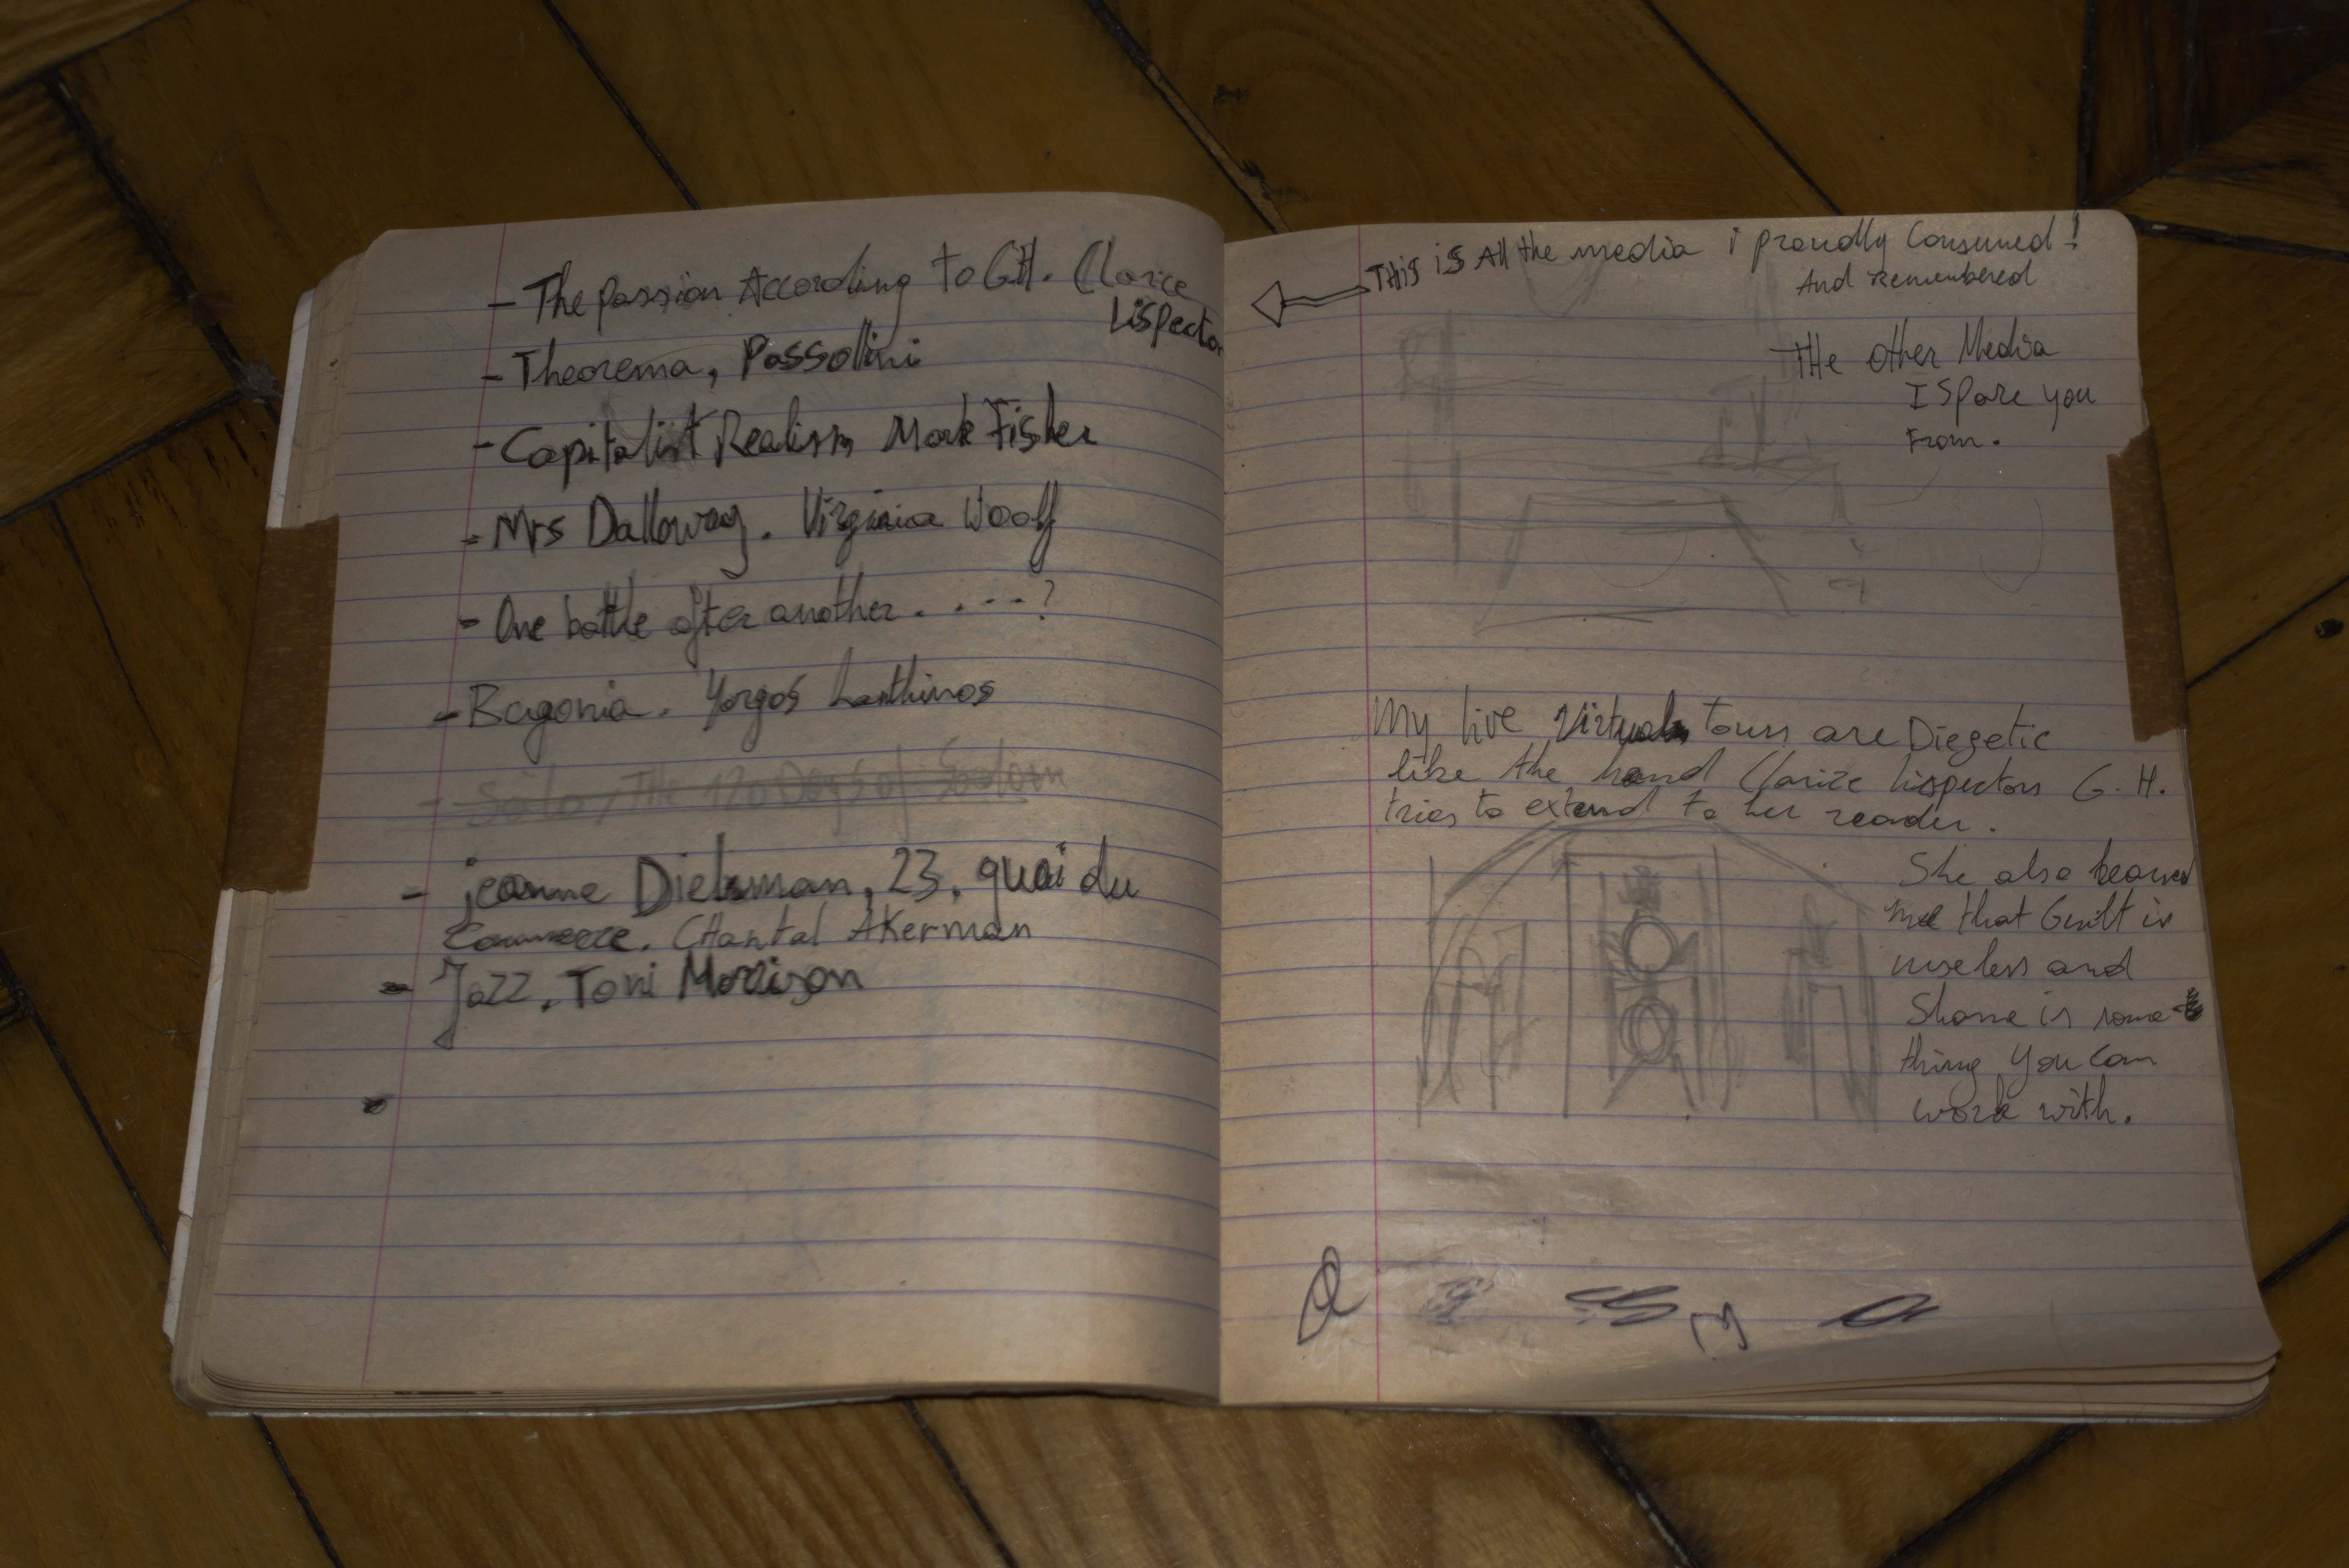 - The passion According to G.H. Clarice
Lispector
- Theorema, Passolini
- Capitalist Realism Mark Fisher
- Mrs Dalloway. Virginia Woolf
- One battle after another. . --- ?
- Bagonia. Yorgos Lanthimos
- Salo, The 120 Days of Sodom
- jeanne Dielsman, 23, quai du
Commerce. CHantal Akerman
- Jazz. Toni Morrison
-
THis is All the media i proudly Consumed!
And remembered
THe other Media
I Spare you
From.
My live Virtual tours are Diegetic
like the hand Clarice Lispectors G. H.
tries to extend to her reader.
She also
me that Guilt is
useless and
Shame is some-
thing you can
work with.